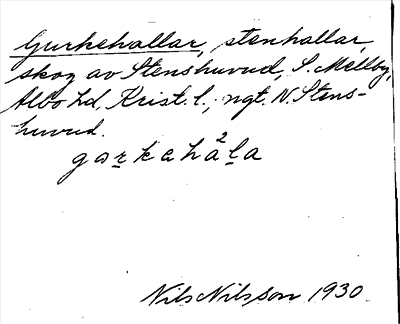 Gurkehallar, stenhallar,
skog av Stenshuvud, S. Mellby,
Albo hd, Krist. l.; ngt. N. Stens-
huvud.
garkahá²la
Nils Nilsson 1930